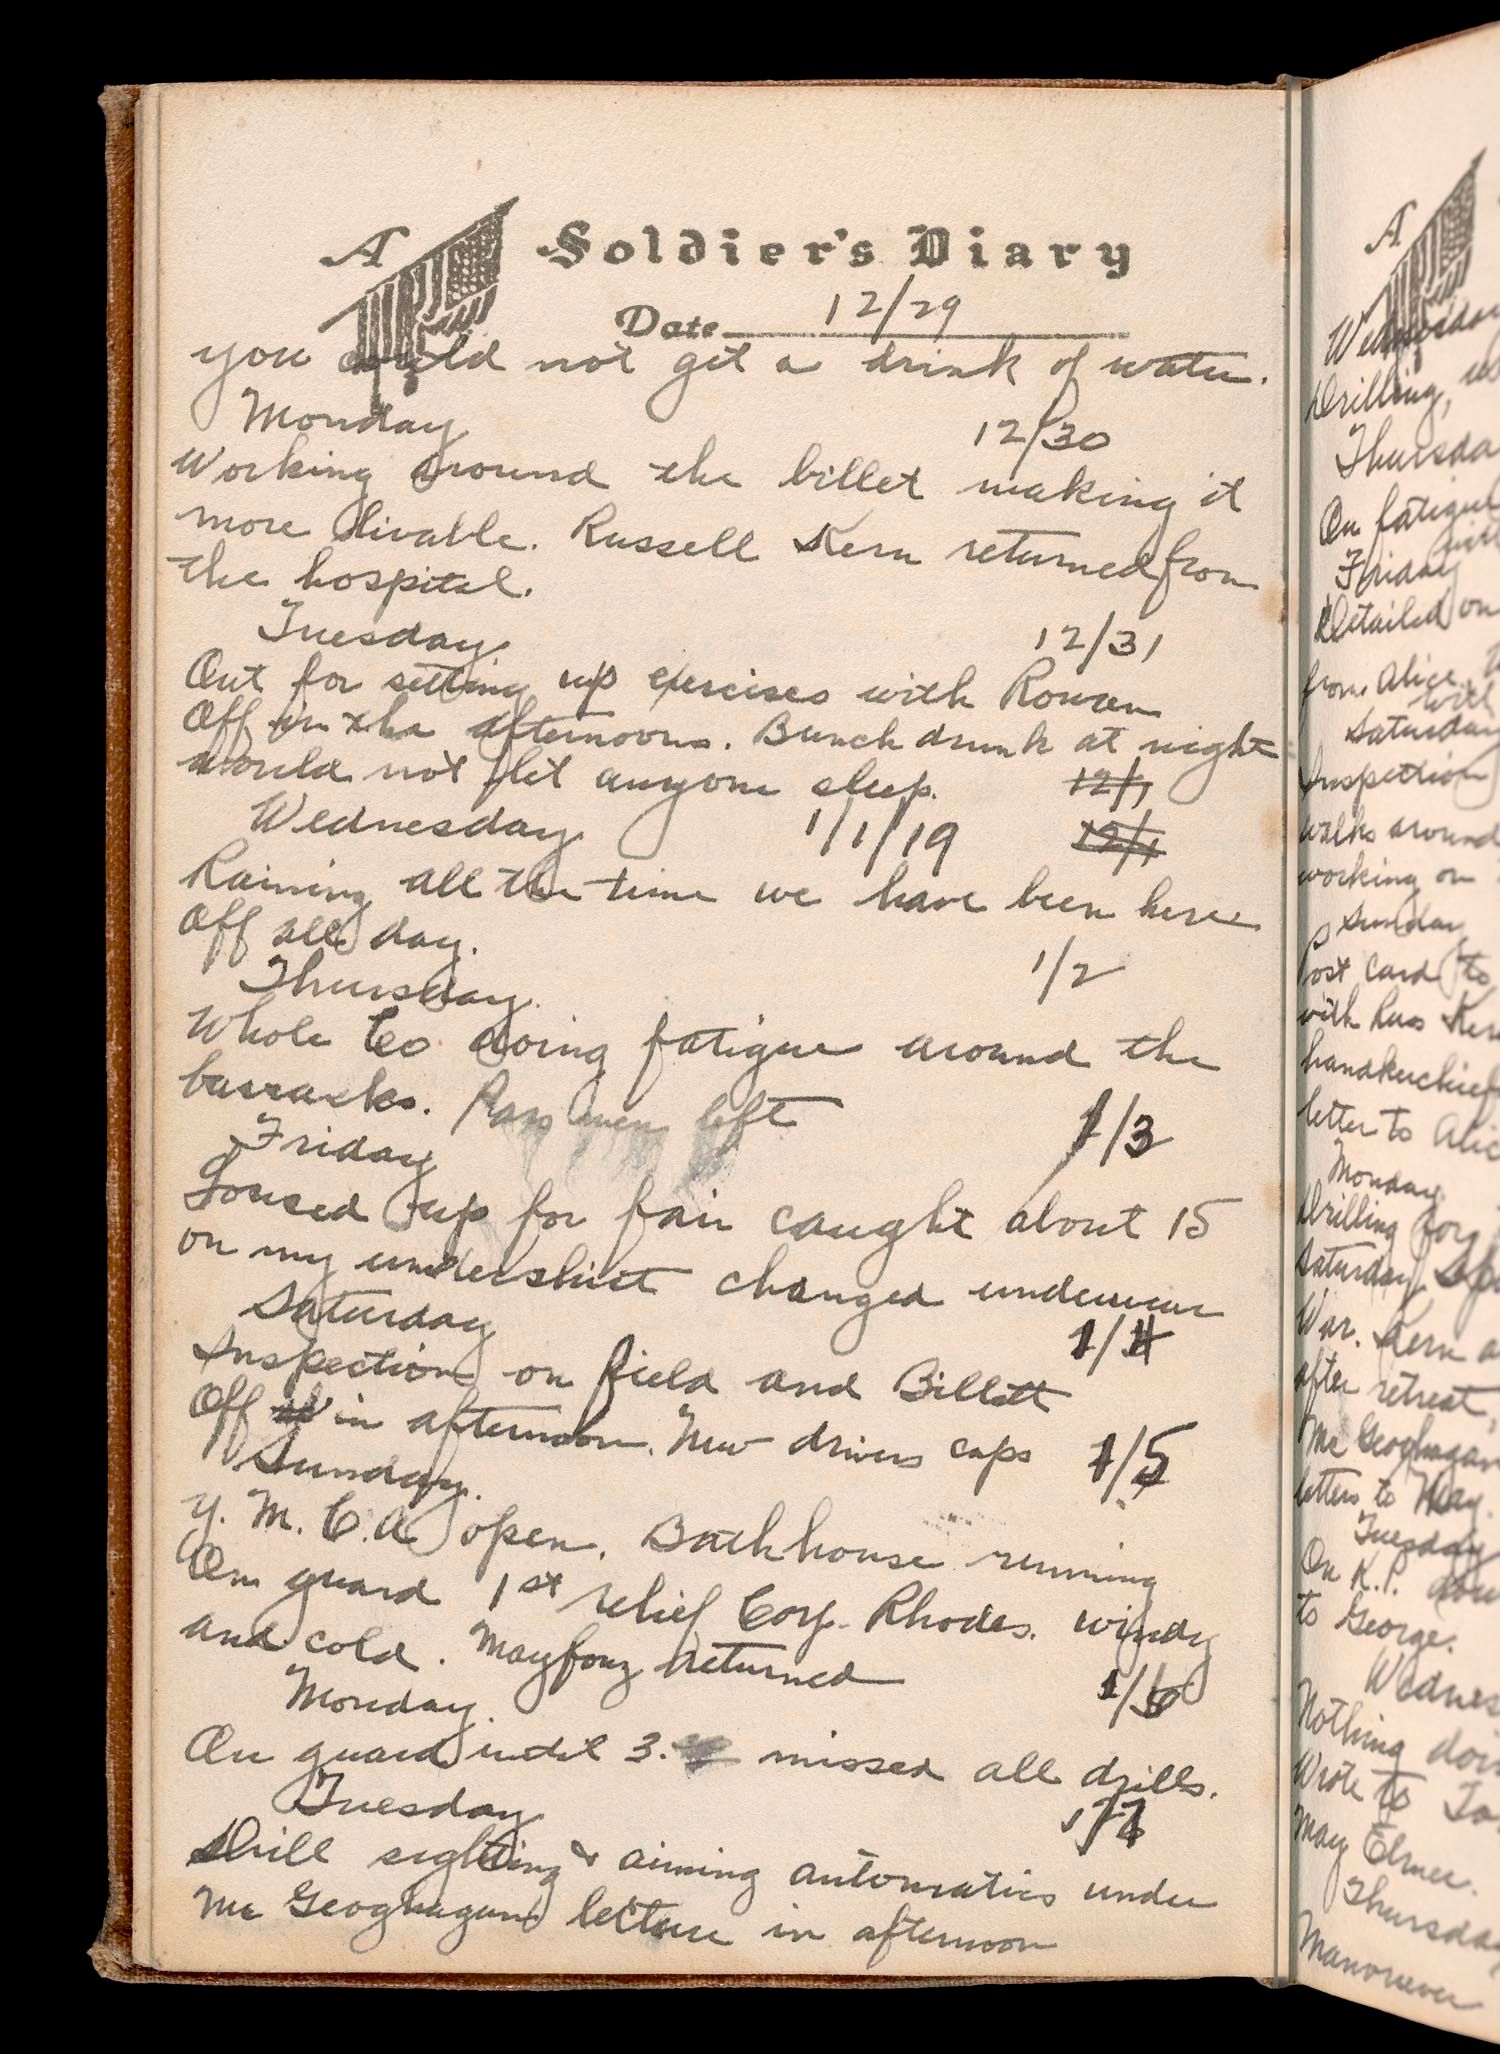 A Soldier's Diary
Date 12/29
you could not get a drink of water.
Monday 12/30
Working around the billet making it
more livable. Russell Kern returned from
the hospital.
Tuesday 12/31
Out for setting up exercises with Rowan
Off in the afternoons. Bunch drunk at night
would not let anyone sleep. 12/1
Wednesday 1/1/19 12/1
Raining all the time we have been here
Off all day.
Thursday 1/2
Whole Co doing fatigue around the
barracks. Pass men left
Friday 1/3
Loused up for fair caught about 15
on my undershirt changed underwear
Saturday 1/4
Inspection on field and Billett
Off in afternoon. New drivers caps
Sunday. 1/5
Y. M. C. A open. Bathhouse running
On guard 1st relief Corp. Rhodes. windy
and cold. returned
Monday. 1/6
On guard until 3. missed all drills.
Tuesday 1/7
Drill sighting & aiming automatics under
Mc Geoghagan lecture in afternoon
A
Wednesday
Drilling,
Thursda
On fatigue
Friday
Detailed on
from Alice.
with
Saturday
Inspection
walks around
working on
Sunday
Post Card to
with Russ Kern
handkerchief
letter to Alic
Monday
Drilling for
Saturday
War. Kern a
after retreat,
Mc Geoghagan
letters to May.
Tuesday
On K.P.
to George.
Wednes
Nothing doin
Wrote to
May Elmer.
Thursday
Manoeuver